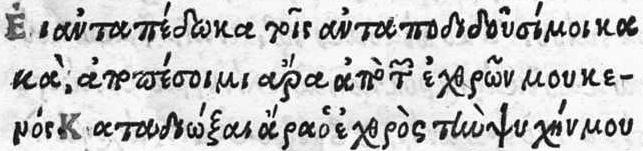 Εἰ ἀνταπέδωκα τοῖς ἀνταποδιδοῦσί μοι κα
κὰ, ἀποπέσοιμι ἄρα ἀπὸ τῶν ἐχθρῶν μου κε-
νός Καταδιώξαι ἄρα ὁ ἐχθρὸς τὴν ψυχήν μου